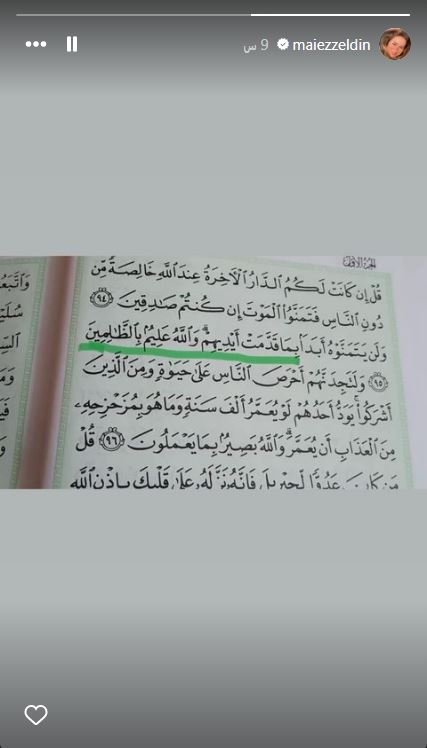 maiezzeldin 9 س
الجزء الأول
قُلْ إِن كَانَتْ لَكُمُ الدَّارُ الْآخِرَةُ عِندَ اللَّهِ خَالِصَةً مِّن
دُونِ النَّاسِ فَتَمَنَّوُا الْمَوْتَ إِن كُنتُمْ صَادِقِينَ ٩٤
وَلَن يَتَمَنَّوْهُ أَبَدًا بِمَا قَدَّمَتْ أَيْدِيهِمْ ۗ وَاللَّهُ عَلِيمٌ بِالظَّالِمِينَ
٩٥ وَلَتَجِدَنَّهُمْ أَحْرَصَ النَّاسِ عَلَىٰ حَيَوٰةٍ وَمِنَ الَّذِينَ
أَشْرَكُوا ۚ يَوَدُّ أَحَدُهُمْ لَوْ يُعَمَّرُ أَلْفَ سَنَةٍ وَمَا هُوَ بِمُزَحْزِحِهِ
مِنَ الْعَذَابِ أَن يُعَمَّرَ ۗ وَاللَّهُ بَصِيرٌ بِمَا يَعْمَلُونَ ٩٦ قُلْ
مَن كَانَ عَدُوًّا لِّجِبْرِيلَ فَإِنَّهُ نَزَّلَهُ عَلَىٰ قَلْبِكَ بِإِذْنِ اللَّهِ